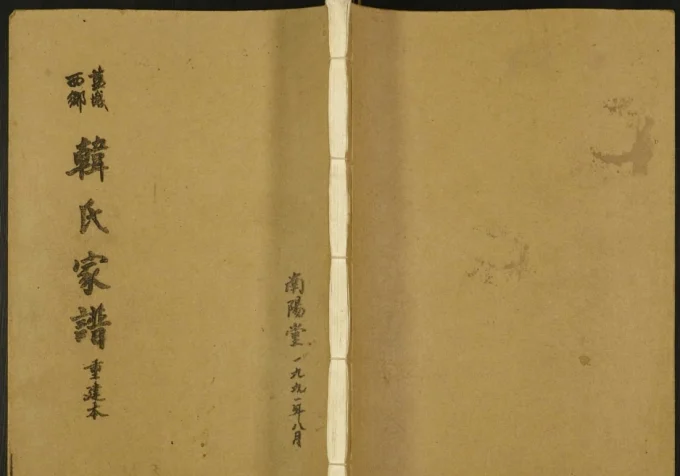 舊城
西鄉
韓氏家譜 重建本
南陽堂 一九九一年八月